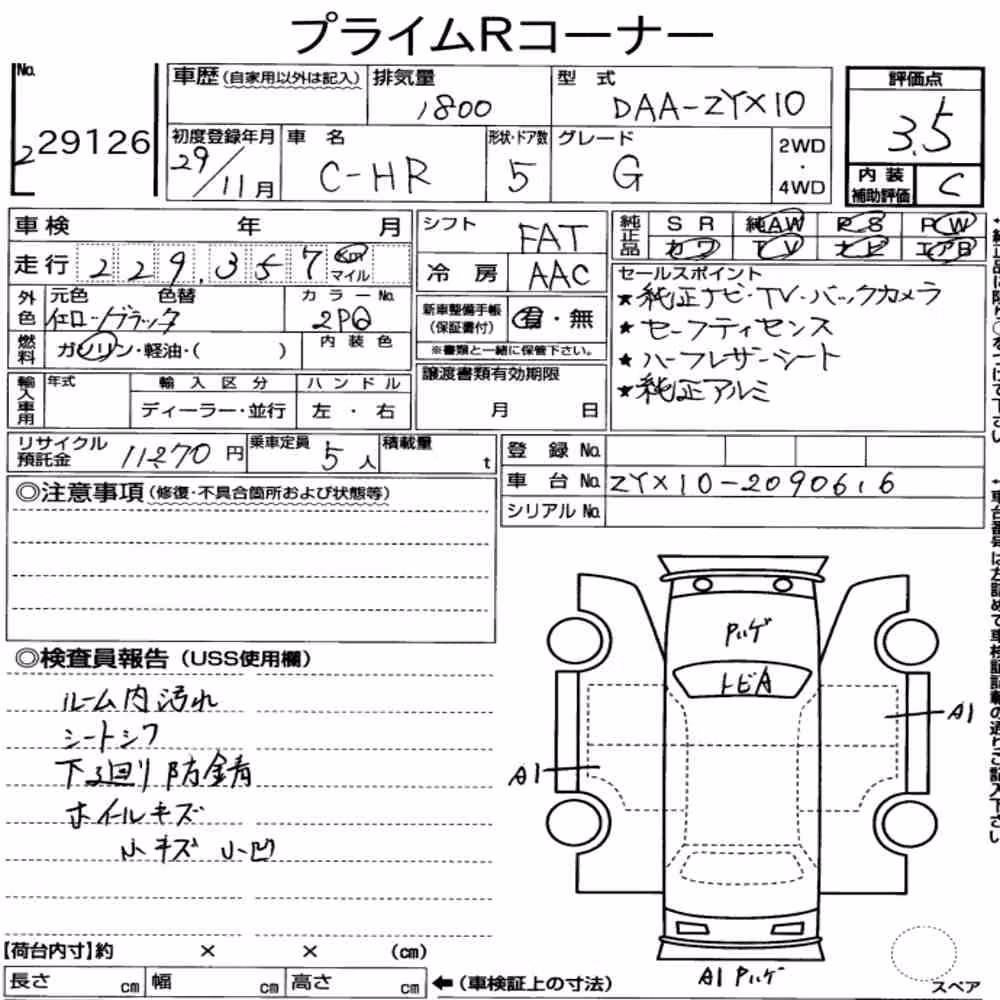 プライムRコーナー
No.
29126
車歴 (自家用以外は記入)
排気量
1800
型 式
DAA-ZYX10
評価点
3.5
内装
補助評価
C
初度登録年月
29/11月
車 名
C-HR
形状・ドア数
5
グレード
G
2WD
・
4WD
車検 年 月
走行 229,357 km
マイル
シフト
FAT
冷房
AAC
純正品
SR 純AW PS PW
カワ TV ナビ エアB
外色
元色 色替
イエロー・ブラック
カラーNo.
2PQ
燃料
ガソリン・軽油・( )
内装色
新車整備手帳
(保証書付)
有・無
※書類と一緒に保管下さい。
セールスポイント
★純正ナビ・TV・バックカメラ
★セーフティセンス
★ハーフレザーシート
★純正アルミ
輸入車用
年式
輸入区分
ディーラー・並行
ハンドル
左・右
譲渡書類有効期限
月 日
リサイクル
預託金
11270円
乗車定員
5人
積載量
t
登録No.
車台No.
ZYX10-2090616
シリアルNo.
◎注意事項 (修復・不具合箇所および状態等)
◎検査員報告 (USS使用欄)
ルーム内汚れ
シートシワ
下回り防錆
ホイルキズ
小キズ 小凹
Pハゲ
トビA
A1
A1
A1 Pハゲ
スペア
【荷台内寸】約 × × (cm)
長さ cm 幅 cm 高さ cm ←(車検証上の寸法)